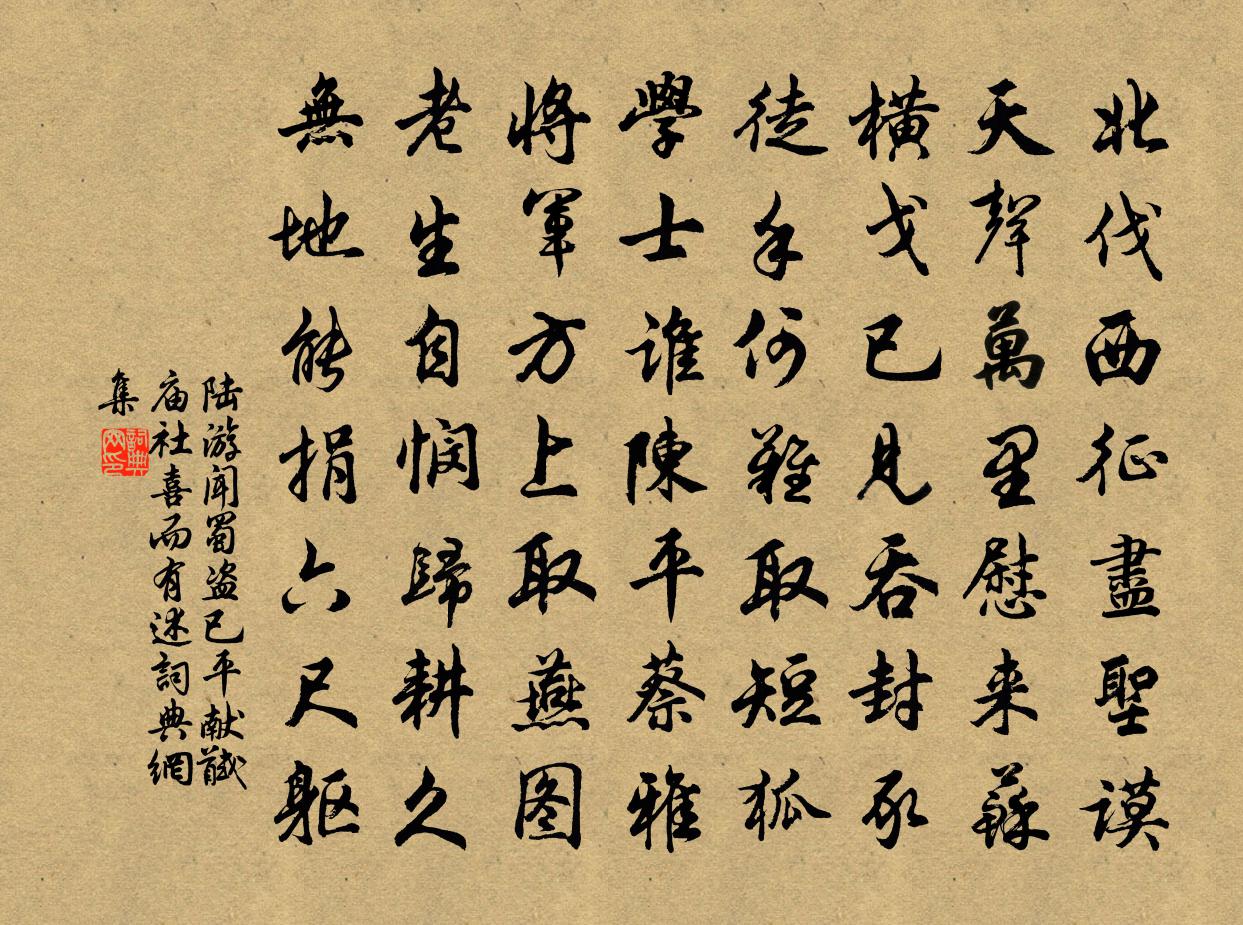 北伐西征盡聖謨
天聲萬里慰来蘇
橫戈已見吞封豕
徒手何難取短狐
學士誰陳平蔡雅
將軍方上取燕图
老生自悯歸耕久
無地能捐六尺躯
陆游闻蜀盗已平献馘
庙社喜而有述詞典網
集
詞典网印